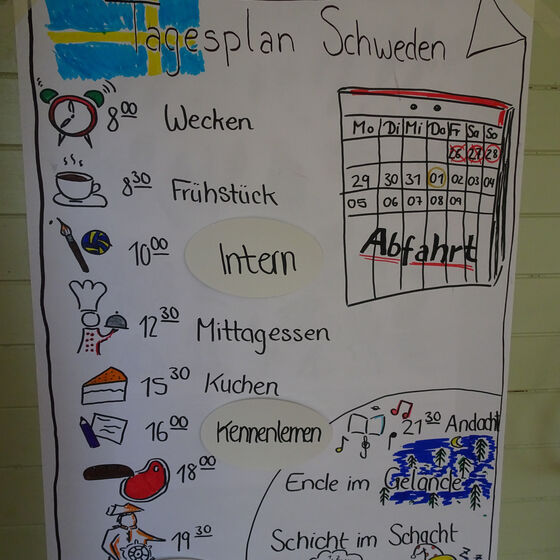 Tagesplan Schweden
8 00 Wecken
8 30 Frühstück
10 00 Intern
12 30 Mittagessen
15 30 Kuchen
16 00 Kennenlernen
18 00
19 30
Mo Di Mi Do Fr Sa So
26 27 28
29 30 31 01 02 03 04
05 06 07 08 09
Abfahrt
21 30 Andacht
Ende im Gelände
Schicht im Schacht
z z